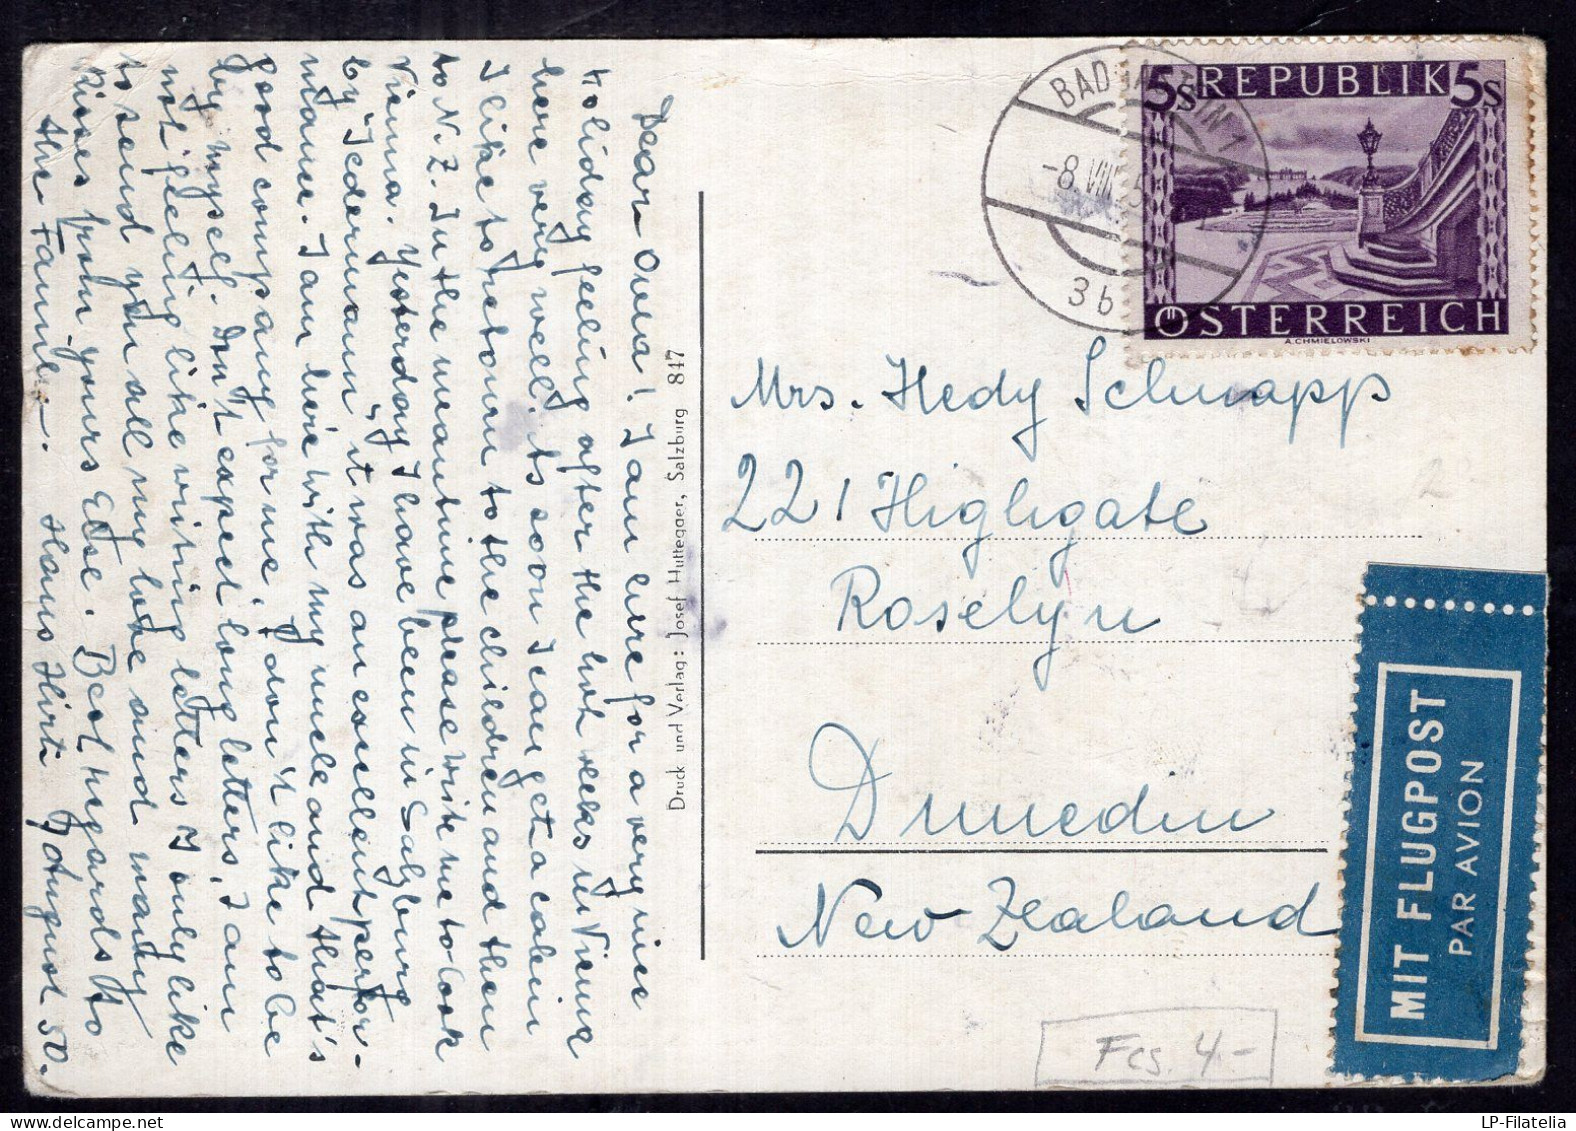 Dear Oma! I am here for a very nice
Holiday feeling after the hot weeks in Vienna
here very well. As soon I can get a cabin
I like to return to the children and then
to N.Z. In the meantime please write me to Cook
Vienna. Yesterday I have been in Salzburg
by "Jedermann" it was an excellent perfor-
mance. I am here with my uncle and that's
good company for me, I don't like to be
by myself. Don't expect long letters, I am
not feeling like writing letters I only like
to send you all my love and many
kisses from yours Else. Best regards to
the Family. Hans Hirti 7 August 50.
Druck und Verlag: Josef Huttegger, Salzburg 847
BADGASTEIN 1
-8. VIII. 5
3b
5S REPUBLIK 5S
ÖSTERREICH
A.CHMIELOWSKI
Mrs. Hedy Schnapp
221 Highgate
Roselyn
Dunedin
New Zealand
MIT FLUGPOST
PAR AVION
Fcs. 4.-
LP-Filatelia